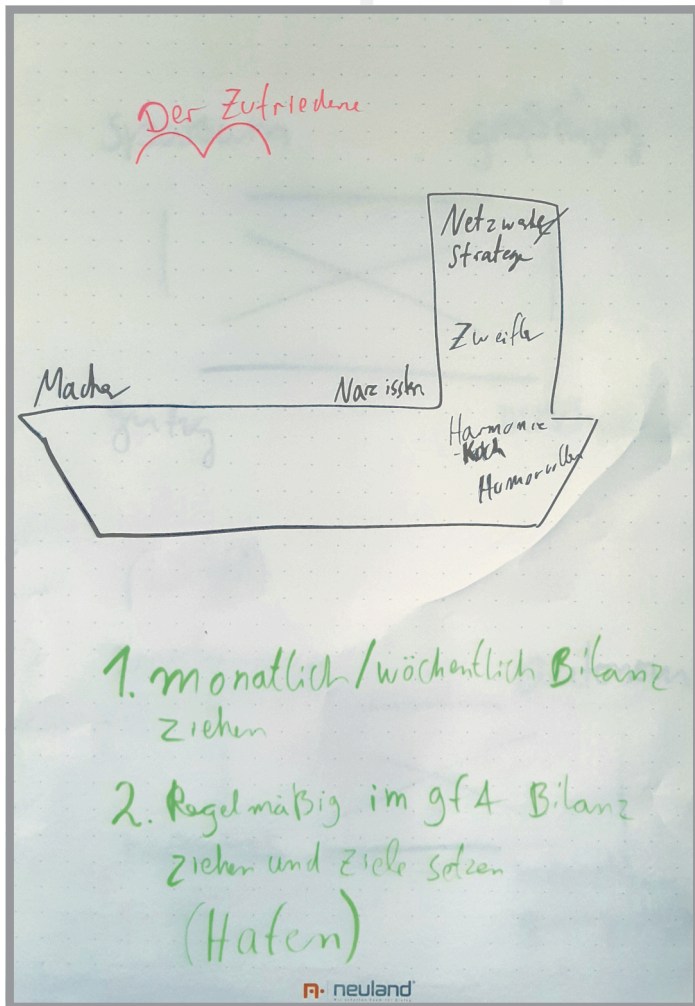 Der Zufriedene
Netzwerker
Stratege
Zweifler
Macher
Narzissten
Harmonie
-Koch
Humorvoller
1. monatlich/wöchentlich Bilanz
ziehen
2. Regelmäßig im gfA Bilanz
ziehen und Ziele setzen
(Hafen)
neuland